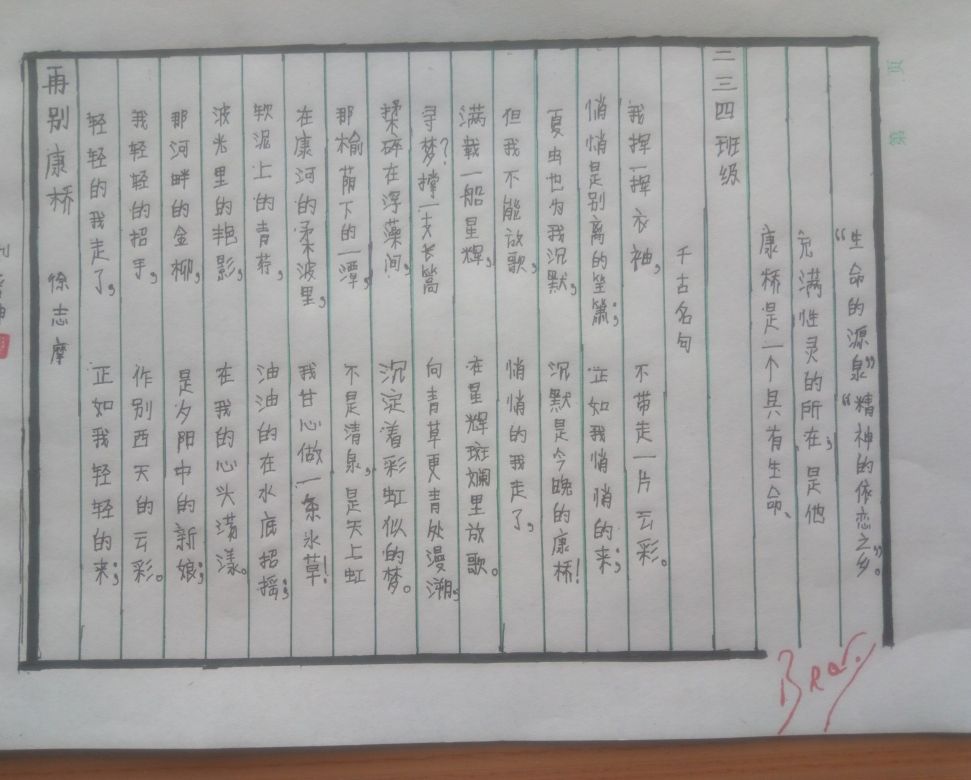 再别康桥 徐志摩
轻轻的我走了, 正如我轻轻的来;
我轻轻的招手, 作别西天的云彩。
那河畔的金柳, 是夕阳中的新娘;
波光里的艳影, 在我的心头荡漾。
软泥上的青荇, 油油的在水底招摇;
在康河的柔波里, 我甘心做一条水草!
那榆荫下的一潭, 不是清泉,是天上虹
揉碎在浮藻间, 沉淀着彩虹似的梦。
寻梦?撑一支长篙 向青草更青处漫溯,
满载一船星辉, 在星辉斑斓里放歌。
但我不能放歌, 悄悄的我走了,
夏虫也为我沉默, 沉默是今晚的康桥!
悄悄是别离的笙箫; 正如我悄悄的来;
我挥一挥衣袖, 不带走一片云彩。
千古名句
二三四班级
康桥是一个具有生命、
充满性灵的所在,是他
“生命的源泉”“精神的依恋之乡”。